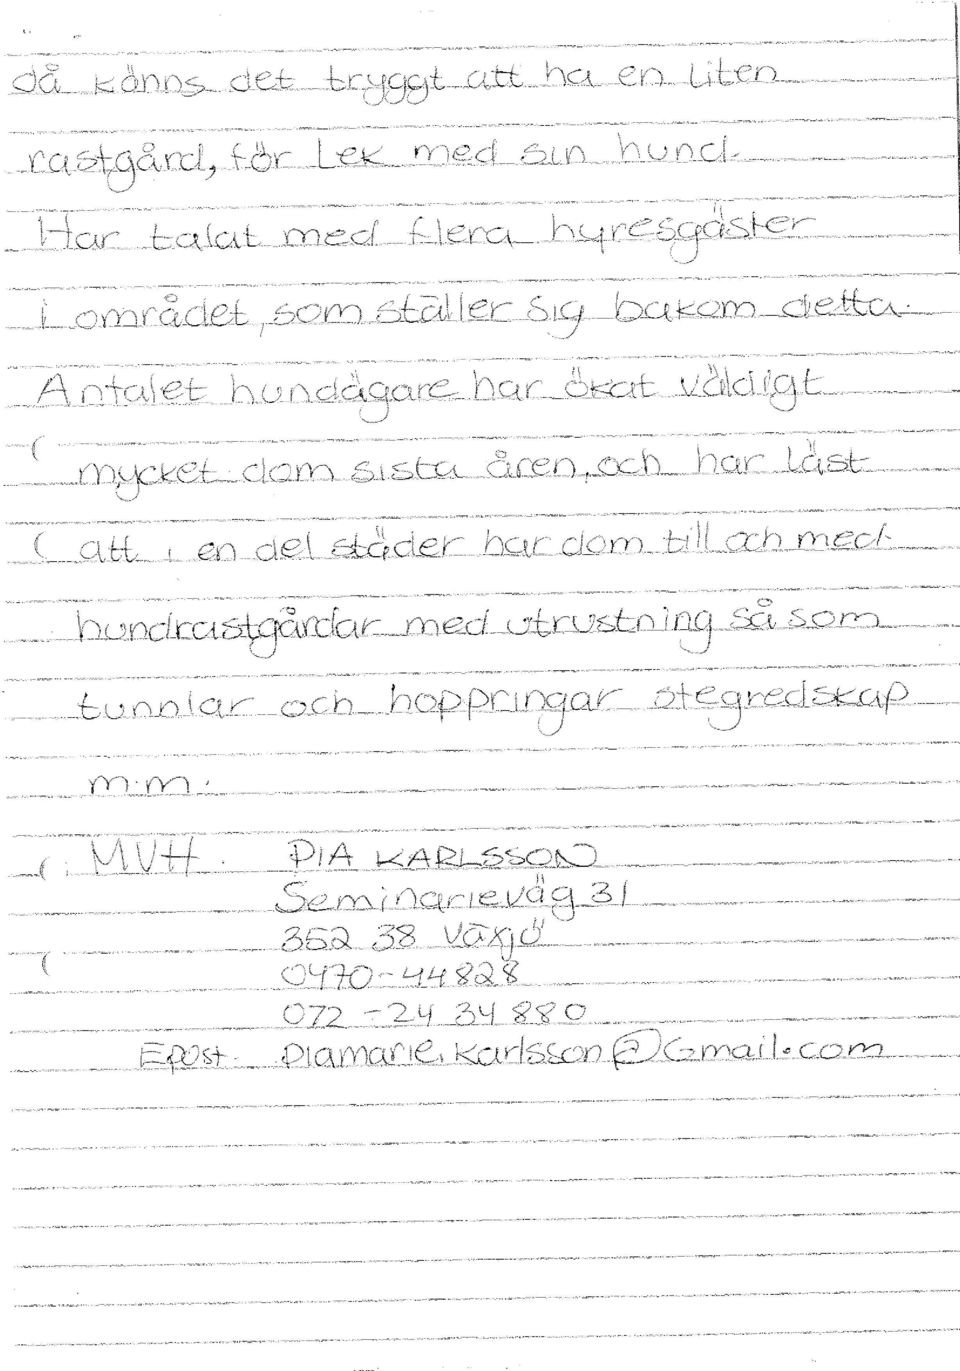 då känns det tryggt att ha en liten
rastgård, för Lek med sin hund.
Har talat med flera hyresgäster
i området, som ställer sig bakom detta.
Antalet hundägare har ökat väldigt
mycket dom sista åren, och har läst
att i en del städer har dom till och med
hundrastgårdar med utrustning så som
tunnlar och hoppringar stegredskap
m.m.
MVH. PIA KARLSSON
Seminarieväg 31
352 38 Växjö
0470-44828
072-24 34 880
Epost piamarie.karlsson@Gmail.com